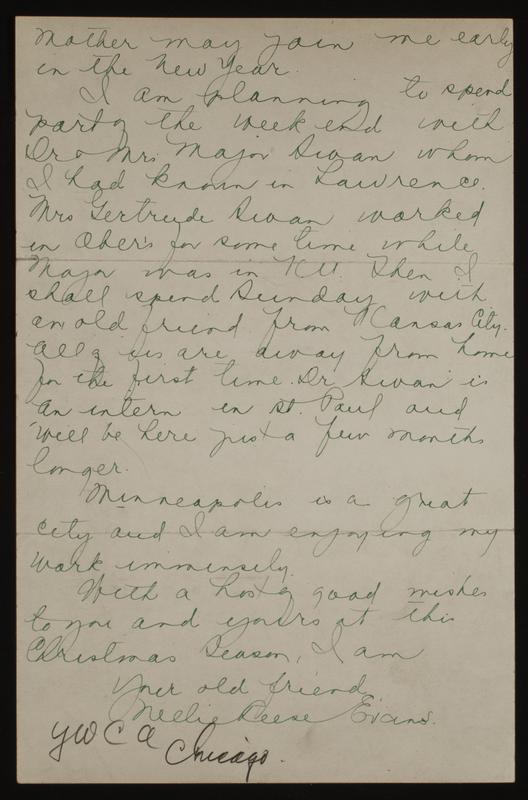 Mother may join me early
in the New Year.
I am planning to spend
part of the week end with
Dr & Mrs Major Swan whom
I had known in Lawrence.
Mrs Gertrude Swan worked
in Ober's for some time while
Major was in K.U. Then I
shall spend Sunday with
an old friend from Kansas City.
All of us are away from home
for the first time. Dr Swan is
an intern in St. Paul and
will be here just a few months
longer.
Minneapolis is a great
city and I am enjoying my
work imminsely.
With a host of good wishes
to you and yours at this
Christmas Season, I am
Your old friend,
Nellie Reese Evans.
YWCA Chicago.